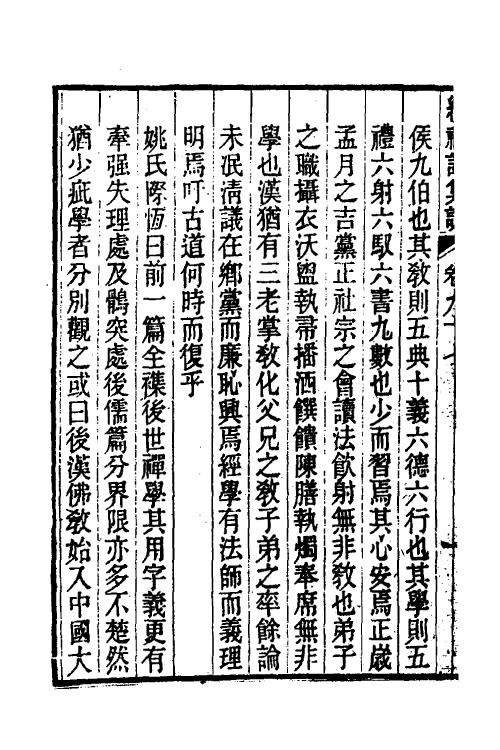 侯九伯也其敎則五典十義六德六行也其學則五
禮六射六馭六書九數也少而習焉其心安焉正歲
孟月之吉黨正社宗之會讀法飮射無非敎也弟子
之職攝衣沃盥執帚播洒饌饋陳膳執燭奉席無非
學也漢猶有三老掌敎化父兄之敎子弟之率餘論
未泯淸議在鄉黨而廉恥興焉經學有法師而義理
明焉吁古道何時而復乎
姚氏際恆曰前一篇全襍後世禪學其用字義更有
牽强失理處及鶻突處後儒篇分界限亦多不楚然
猶少疵學者分別觀之或曰後漢佛敎始入中國大